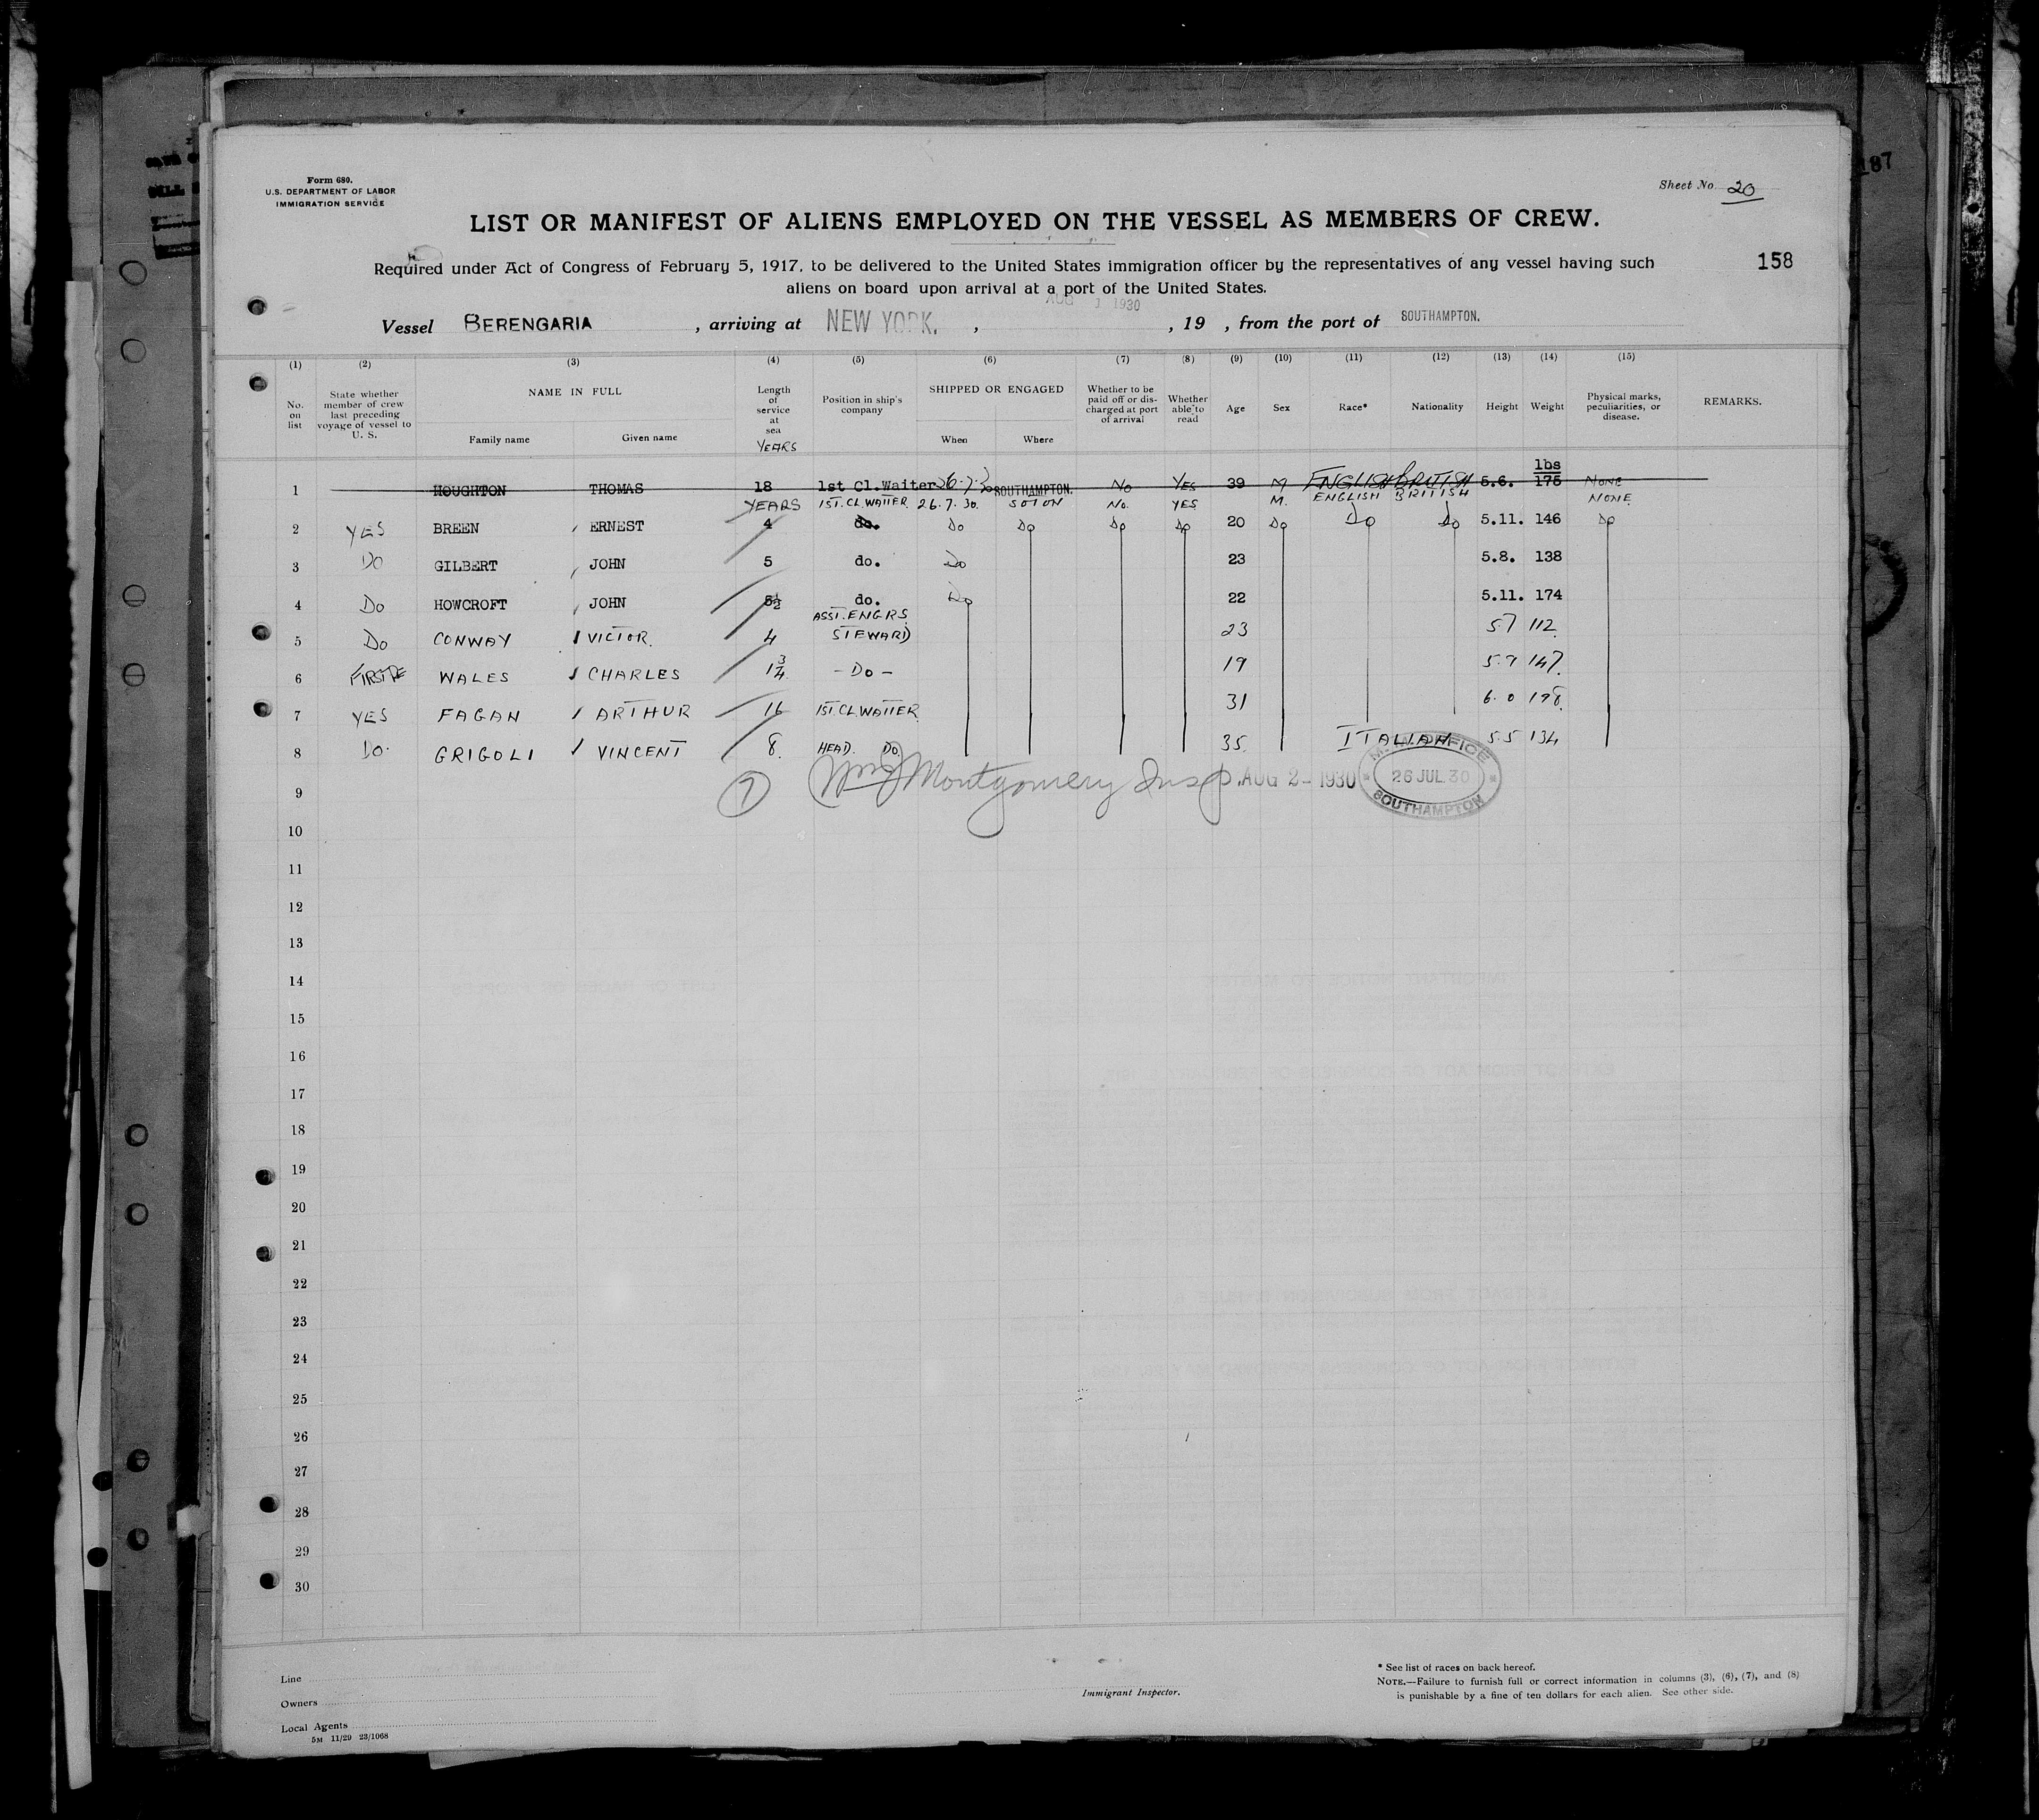 Form 680.
U.S. DEPARTMENT OF LABOR
IMMIGRATION SERVICE
Sheet No. 20
187
LIST OR MANIFEST OF ALIENS EMPLOYED ON THE VESSEL AS MEMBERS OF CREW.
Required under Act of Congress of February 5, 1917, to be delivered to the United States immigration officer by the representatives of any vessel having such
aliens on board upon arrival at a port of the United States.
158
AUG 1 1930
Vessel BERENGARIA , arriving at NEW YORK. , , 19 , from the port of SOUTHAMPTON.
(1) (2) (3) (4) (5) (6) (7) (8) (9) (10) (11) (12) (13) (14) (15)
No. on list
State whether member of crew last preceding voyage of vessel to U. S.
NAME IN FULL
Family name Given name
Length of service at sea
YEARS
Position in ship's company
SHIPPED OR ENGAGED
When Where
Whether to be paid off or discharged at port of arrival
Whether able to read
Age
Sex
Race*
Nationality
Height
Weight
Physical marks, peculiarities, or disease.
REMARKS.
lbs
1 HOUGHTON THOMAS 18 1st Cl.Waiter SOUTHAMPTON. No YES 39 M ENGLISH BRITISH 5.6. 175 NONE
YEARS 1ST.CL.WAITER 26.7.30. SOTON No. YES M. ENGLISH BRITISH NONE
2 YES BREEN ERNEST 4 do. Do Do Do Do 20 Do Do Do 5.11. 146 Do
3 Do GILBERT JOHN 5 do. Do 23 5.8. 138
4 Do HOWCROFT JOHN do. Do 22 5.11. 174
5 Do CONWAY VICTOR. 4 ASST. ENGRS STEWARD 23 5.7 112
6 WALES CHARLES 1¾ - Do - 19 5.9 147
7 YES FAGAN ARTHUR 16 1ST.CL.WAITER 31 6.0 198
8 Do. GRIGOLI VINCENT 8. HEAD. Do. 35 ITALIAN 5.5 134
9 7 Montgomery Insp. AUG 2- 1930
M.M. OFFICE
26 JUL 30
SOUTHAMPTON
10
11
12
13
14
15
16
17
18
19
20
21
22
23
24
25
26
27
28
29
30
Line
Owners
Local Agents
5M 11/29 23/1068
Immigrant Inspector.
* See list of races on back hereof.
NOTE.—Failure to furnish full or correct information in columns (3), (6), (7), and (8)
is punishable by a fine of ten dollars for each alien. See other side.